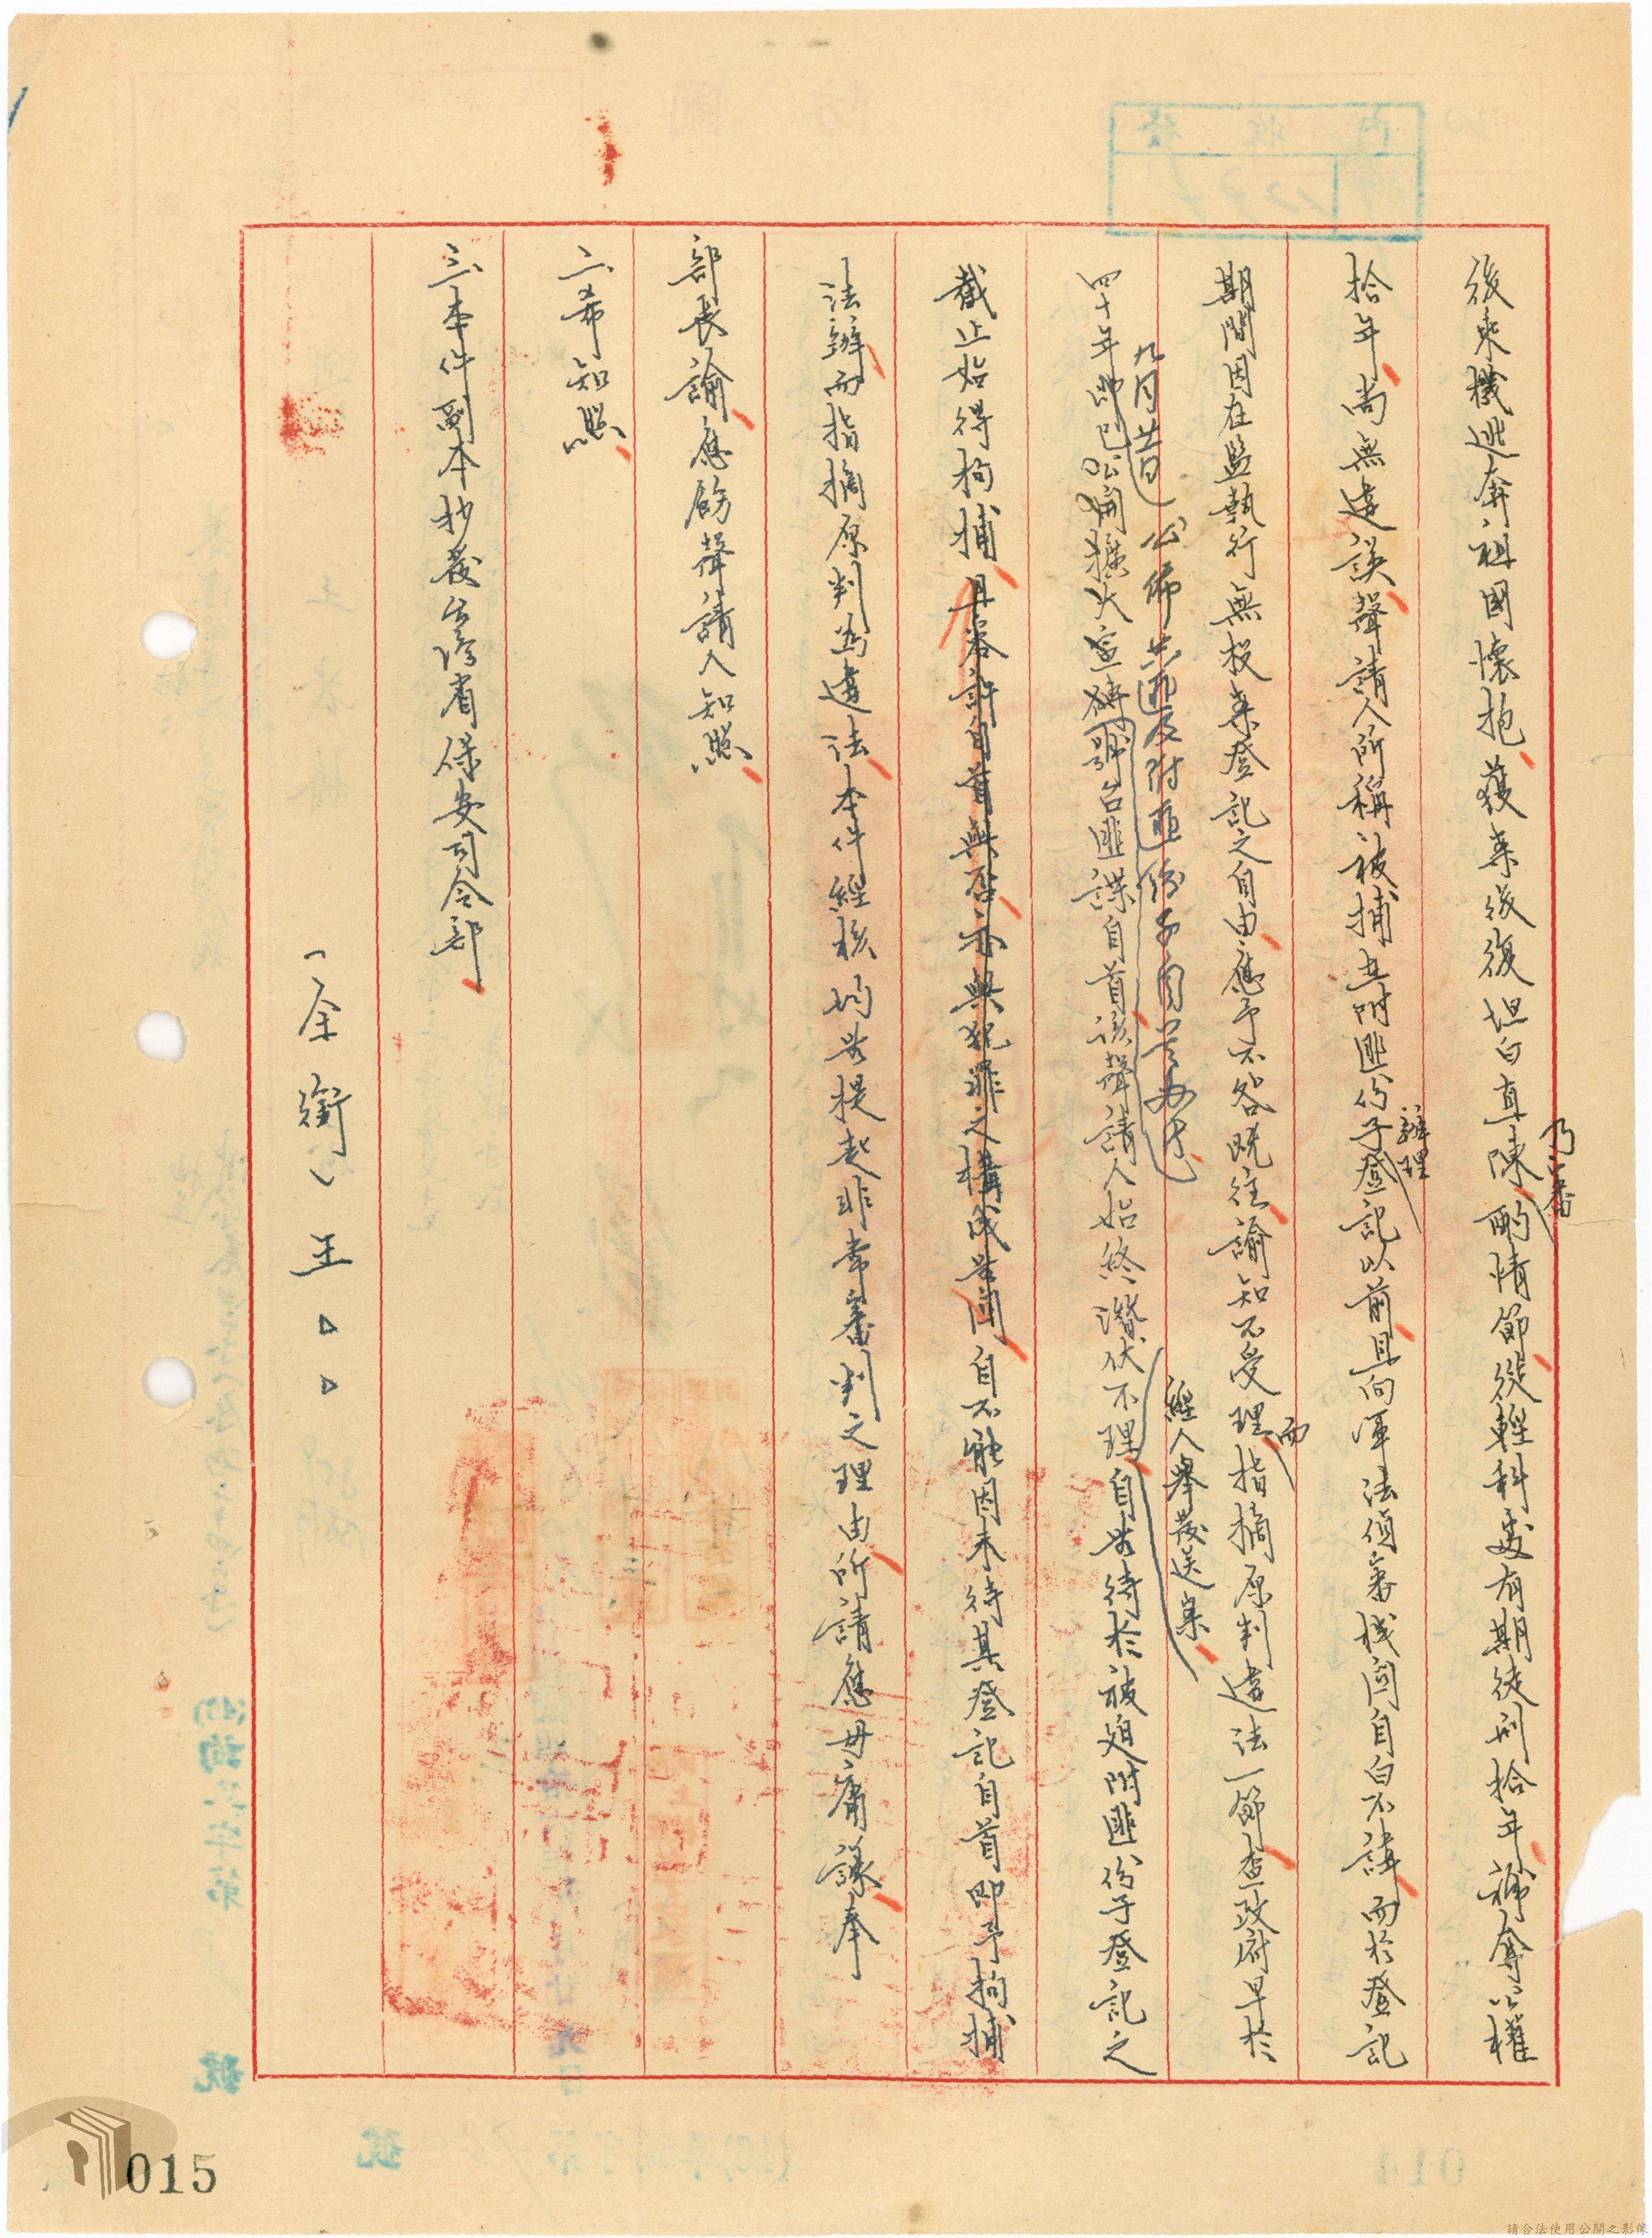 後來機逃奔祖國懷抱獲案後復坦白直陳乃審酌情節從輕科處有期徒刑拾年褫奪公權
拾年尚無違誤聲請人所稱被捕在附匪份子辦理登記以前且向軍法偵審機關自白不諱而於登記
期間因在監執行無投案登記之自由應予不咎既往諭知不受理而指摘原判違法一節查政府早於
四十年即已公開擴大宣傳號召匪諜自首該聲請人始終潛伏不理自無待於被迫附匪份子登記之
九月廿日公佈共匪及附匪份子自首办法
經人舉發送案
截止始得拘捕且容許自首與否亦與犯罪之構成無關自不能因未待其登記自首即予拘捕
法辦而指摘原判為違法本件經核均無提起非常審判之理由所請應毋庸議奉
部長諭應飭聲請人知照
二、希知照
三、本件副本抄發台灣省保安司令部
（全銜）王
015
請合法使用公開之影像